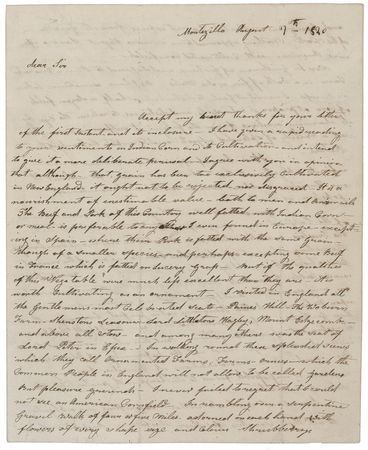 Montezillo August 7th 1820
Dear Sir
Accept my best thanks for your letter
of the first Instant and its inclosure — I have given a rapid reading
to your sentiments on Indian Corn and its Cultivation and intend
to give it a more deliberate perusal — I agree with you in opinion
that although that grain has been too exclusively Cultivated
in New England, it ought not to be rejected nor disgraced — It is a
nourishment of inestimable value — both to man and Animals
The Beef and Pork of this Country well fatted with Indian Corn
or meal is preferable to any found in Europe — except-
ing in Spain — where their Pork is fatted with the same Grain
though of a smaller species — and perhaps excepting some Beef
in France which is fatted on Grass — But if the qualities
of this Vegetable were much less excellent than they are — It is
worth Cultivating as an ornament — I visited in England all
the Gentlemens most Celebrated Seats — Paines Hill, The Woburn
Farm — Lord Littletons Hagley, Mount Edgecomb
and above all Stow — and among many others was the seat of
Lord Petre in Essex — In walking round these splendid scenes
which they call Ornamented Farms, which the
Common People in England will not allow to be called gardens
But pleasure grounds — I never failed to regret that I could
not see an American Cornfield — In rambling over a serpentine
Gravel Walk of four or five Miles adorned on each hand with
flowers of every shape size and Colour Shrubbery